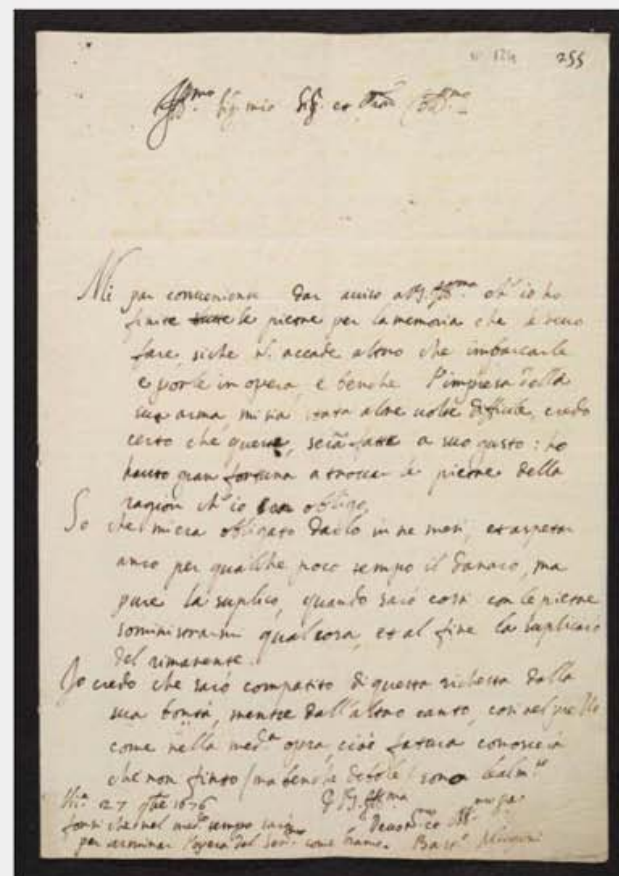 n° 124 255
Ill.mo Sig. mio Sig. et Pron Col.mo
Mi par conueniente dar auiso a V.S. Ill.ma ch'io ho
finite tutte le pietre per la memoria che deuo
fare, siche n. accade altro che imbarcarle
e porle in opera, e benche l'impresa della
sua arma, mi sia stata altre uolte difficile, credo
certo che queste, sarà fatte a suo gusto: ho
hauto gran fortuna a trouar le pietre della
ragion ch'io obligo,
So che mi era obligato darlo in tre mesi, et aspetar
anco per qualche poco tempo il danaro, ma
pure la suplico, quando sarò costì con le pietre
somministrarmi qualcosa, et al fine la suplirò
del rimanente.
Io credo che sarò compatito di questa richiesta dalla
sua bontà, mentre dall'altro canto, con nel
come nella med.a opera, cioè fatura conoscerà
che non finto (ma benche debole) sono
27 9bre 1676 V.S. Ill.ma
che nel med.o tempo
per l'opera del come bramo.